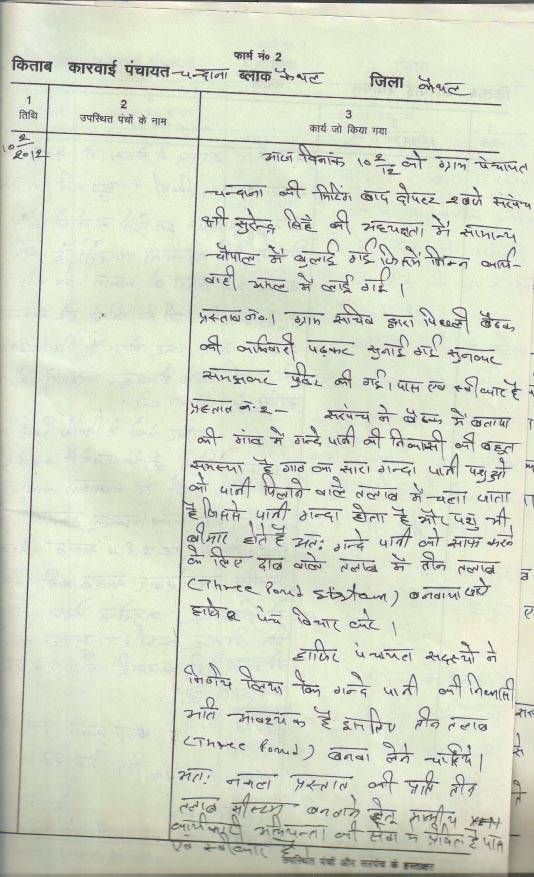 फार्म नं० 2
किताब कारवाई पंचायत चन्दाना ब्लाक कैथल जिला कैथल
1 2 3
तिथि उपस्थित पंचों के नाम कार्य जो किया गया
10/2/2012 आज दिनांक 10 2/12 को ग्राम पंचायत
चन्दाना की मिटिंग बाद दोपहर 2 बजे सरपंच
श्री सुरेन्द्र सिंह की अध्यक्षता में सामान्य
चौपाल में बुलाई गई जिसमें निम्न कार्य-
वाही अमल में लाई गई।
प्रस्ताव नं० 1 ग्राम सचिव द्वारा पिछली बैठक
की कार्यवाही पढ़कर सुनाई गई सुनकर
समझकर पुष्टि की गई। पास एवं स्वीकार है
प्रस्ताव नं. 2 - सरपंच ने बैठक में बताया
की गांव में गन्दे पानी की निकासी की बहुत
समस्या है गांव का सारा गन्दा पानी पशुओं
को पानी पिलाने वाले तलाब में चला जाता
है जिससे पानी गन्दा होता है और पशु भी
बीमार होते है अत: गन्दे पानी को साफ करने
के लिए वाले तलाब में तीन तलाब
(Three Pond Sistam) बनवाया जाये
हाजिर पंच विचार करे।
हाजिर पंचायत सदस्यों ने
निर्णय लिया कि गन्दे पानी की निकासी
अति आवश्यक है इसलिए तीन तलाब
(Three Pond) बनवा लेने चाहिये।
अत: नकल प्रस्ताव की प्रति तीन
तलाब सीस्टम बनवाने हेतु XEN
कार्यकारी अभियन्ता की सेवा में प्रेषित है पास
एवं स्वीकार है।
उपस्थित पंचों और सरपंच के हस्ताक्षर